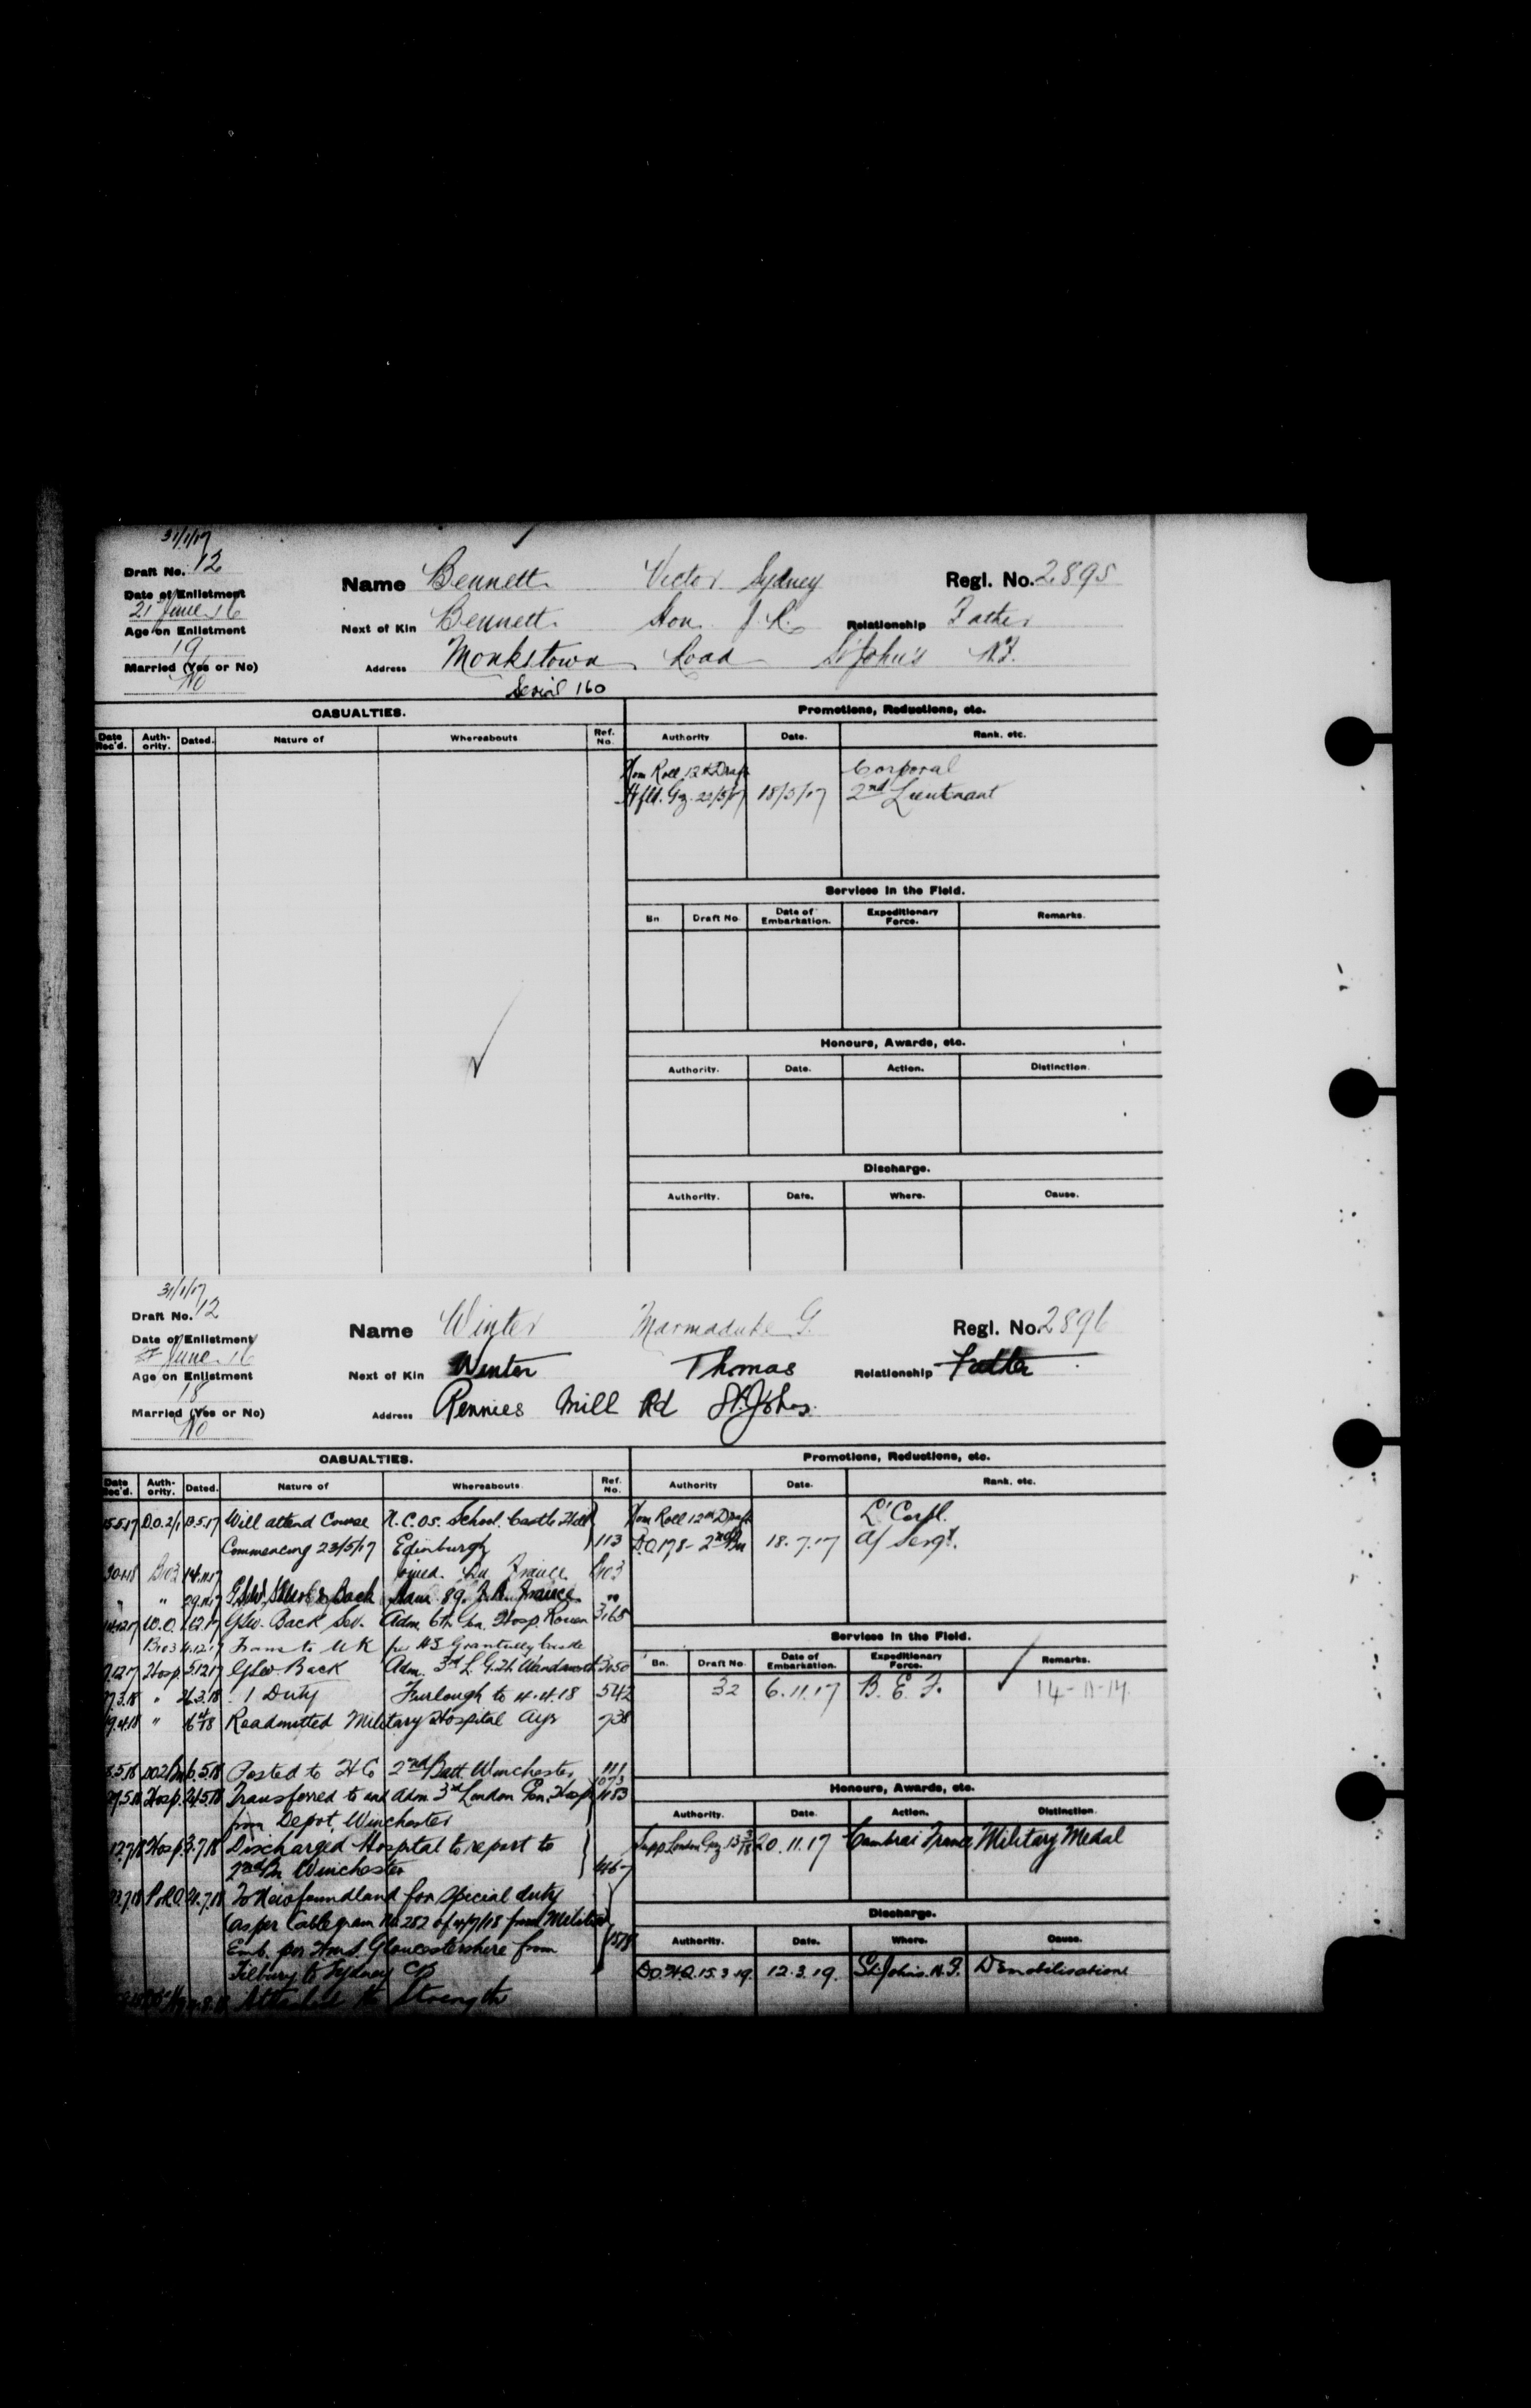 31/1/17
Draft No. 12
Name Bennett Victor Sydney Regl. No. 2895
Date of Enlistment
21 June 16
Next of Kin Bennett Hon. J. R. Relationship Father
Age on Enlistment
19
Married (Yes or No)
No
Address Monkstown Road St John's N.F.
Serial 160
CASUALTIES.
Promotions, Reductions, etc.
Date Rec'd. Auth-ority. Dated. Nature of Whereabouts Ref. No. Authority Date. Rank. etc.
Nom Roll 12th Draft Corporal
Nfld. Gz. 22/5/17 18/5/17 2nd Lieutenant
Services in the Field.
Bn Draft No Date of Embarkation. Expeditionary Force. Remarks.
Honours, Awards, etc.
Authority. Date. Action. Distinction.
Discharge.
Authority. Date. Where. Cause.
31/1/17
Draft No. 12
Name Winter Marmaduke G. Regl. No. 2896
Date of Enlistment
June 16
Next of Kin Winter Thomas Relationship Father
Age on Enlistment
18
Married (Yes or No)
No
Address Rennies Mill Rd St. Johns.
CASUALTIES.
Promotions, Reductions, etc.
Date Rec'd. Auth-ority. Dated. Nature of Whereabouts. Ref. No. Authority Date. Rank. etc.
Will attend Course N.C.Os. School. Castle Hill
Commencing 23/5/17 Edinburgh 113
Nom Roll 12th Draft L' Corpl.
D.O. 178 - 2nd Bn 18.7.17 A/ Sergt.
B103 14.11.17 joined. Bn France B103
" 29.11.17 GSW & Back France
W.O. 1.12.17 GSW. Back Sev. Adm. 6th Gn. Hosp. Rouen 3165
B103 4.12.17 Trans to UK per HS Grantully Castle
Hosp. 5.12.17 GSW Back Adm. 3rd L. G. H. Wandsworth 3050
" 26.3.18 1 Duty Furlough to 4.4.18 542
" Readmitted Military Hospital Ayr 738
Services in the Field.
Bn. Draft No Date of Embarkation. Expeditionary Force. Remarks.
32 6.11.17 B. E. F.
DO2Bn 6.5.18 Posted to H C 2nd Batt. Winchester
Hosp. 24.5.18 Transferred to and Adm. 3rd London Gen. Hosp.
from Depot, Winchester
Hosp. 3.7.18 Discharged Hospital to report to
2nd Bn Winchester
Honours, Awards, etc.
Authority. Date. Action. Distinction.
Supp London Gaz 13 3/18 20.11.17 Cambrai France Military Medal
To Newfoundland for special duty
(as per Cablegram No 282 of 4/7/18 from Militia)
Emb. per Gloucestershire from
Tilbury to Sydney CB
Strength
Discharge.
Authority. Date. Where. Cause.
D.O. H.Q. 15.3.19. 12.3.19. St. John's. N.F. Demobilisation